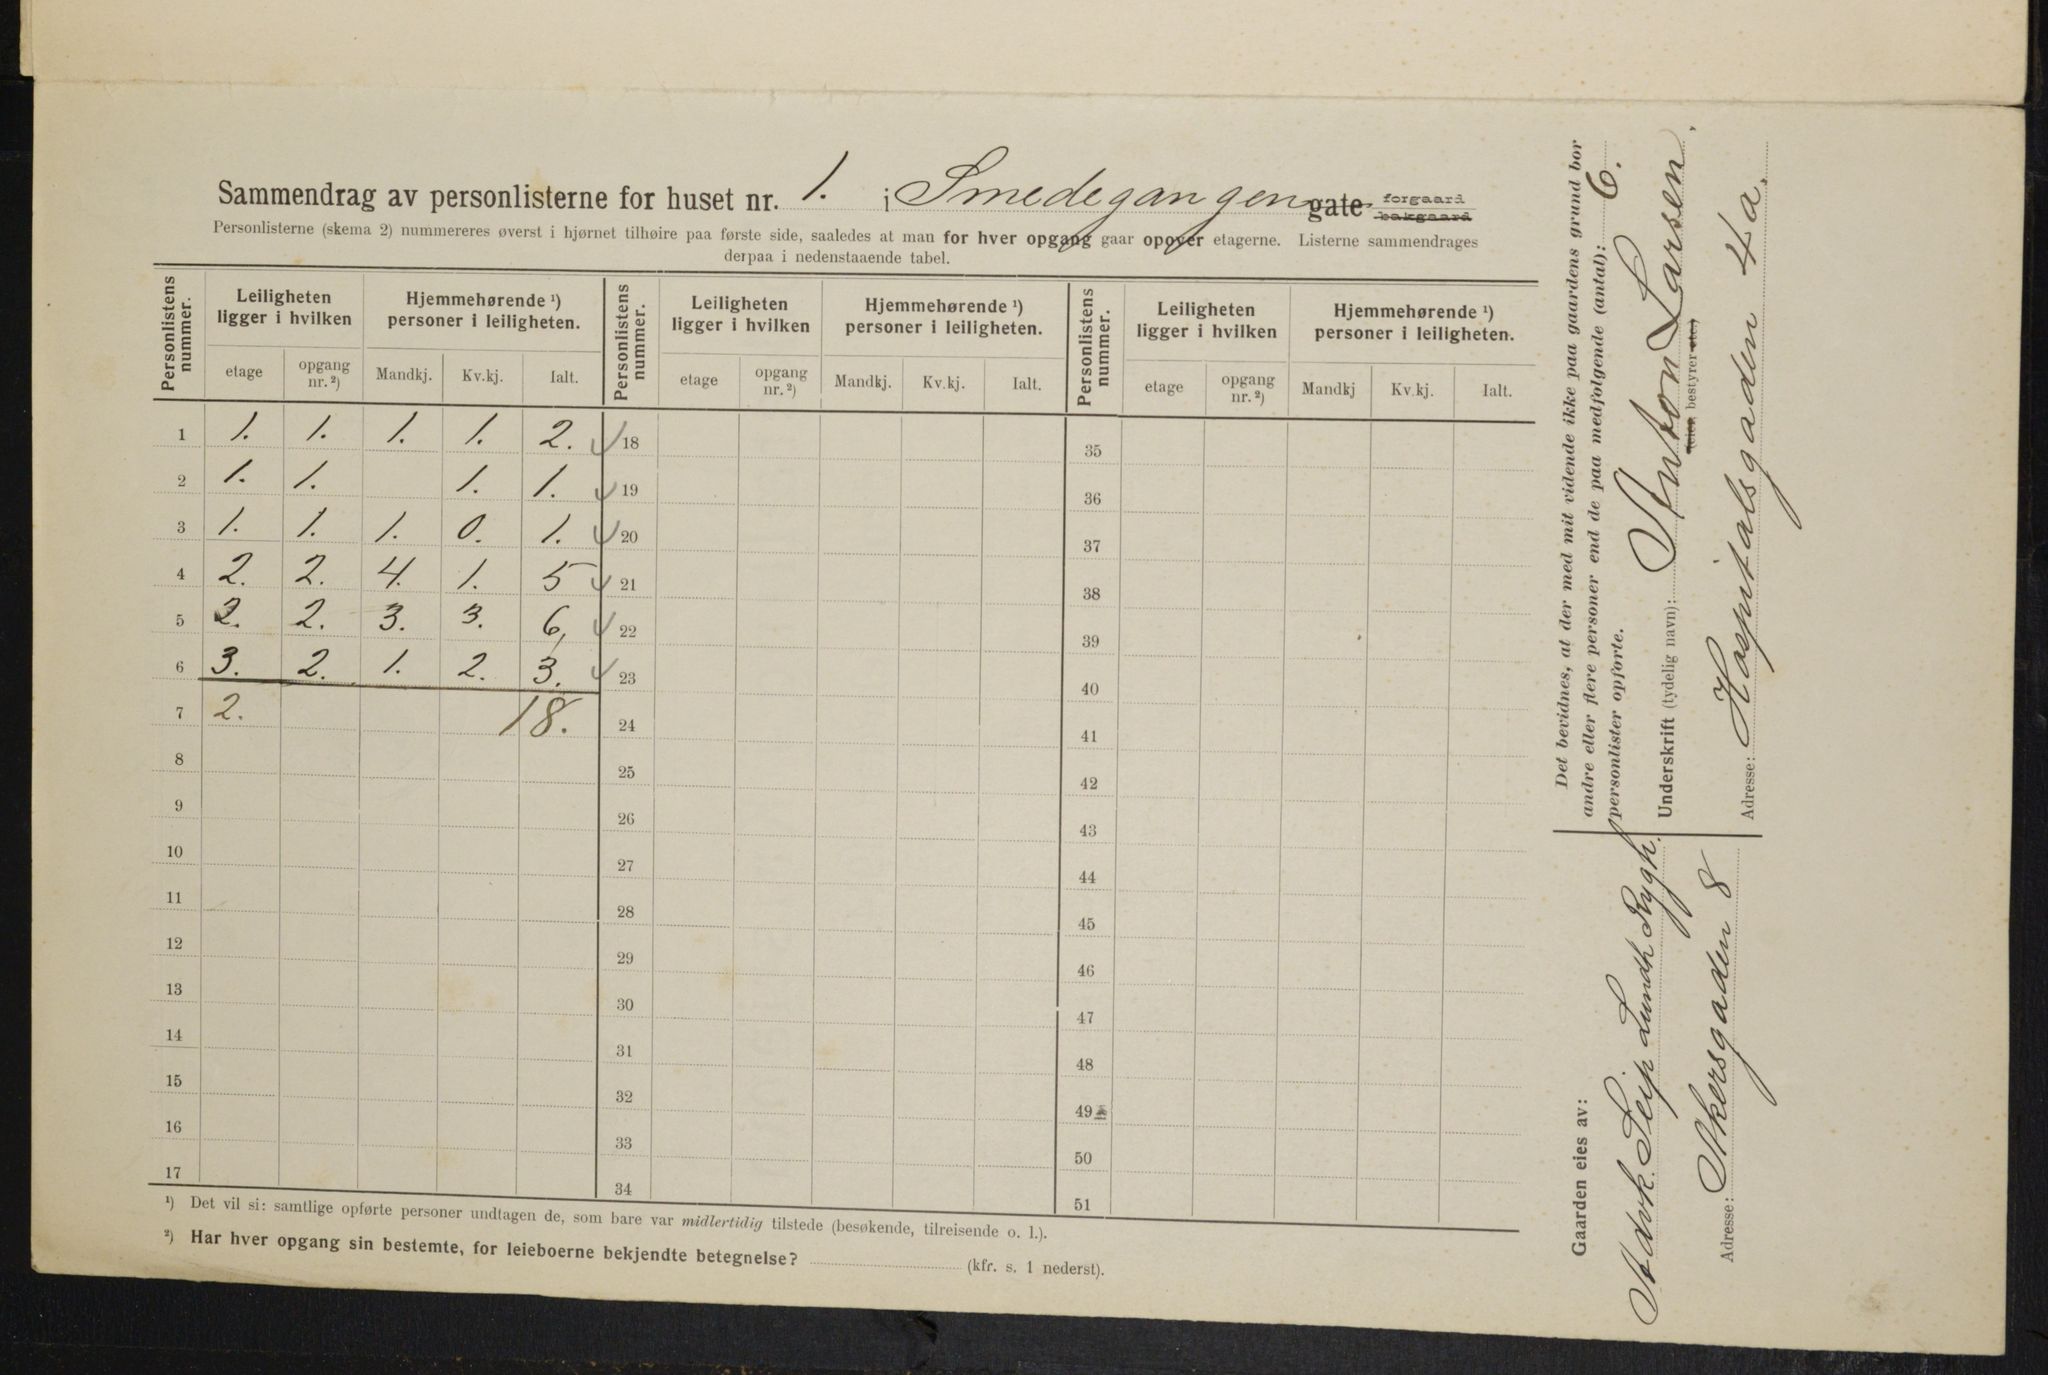 Sammendrag av personlisterne for huset nr. 1. i Smedegangen gate forgaard bakgaard
Personlisterne (skema 2) nummereres øverst i hjørnet tilhøire paa første side, saaledes at man for hver opgang gaar opover etagerne. Listerne sammendrages
derpaa i nedenstaaende tabel.
Personlistens nummer. Leiligheten ligger i hvilken Hjemmehørende ¹) personer i leiligheten. Personlistens nummer. Leiligheten ligger i hvilken Hjemmehørende ¹) personer i leiligheten. Personlistens nummer. Leiligheten ligger i hvilken Hjemmehørende ¹) personer i leiligheten.
etage opgang nr. ²) Mandkj. Kv.kj. Ialt. etage opgang nr. ²) Mandkj. Kv.kj. Ialt. etage opgang nr. ²) Mandkj Kv.kj. Ialt.
1 1. 1. 1. 1. 2. 18 35
2 1. 1. 1. 1. 19 36
3 1. 1. 1. 0. 1. 20 37
4 2. 2. 4. 1. 5 21 38
5 2. 2. 3. 3. 6, 22 39
6 3. 2. 1. 2. 3. 23 40
7 2. 18. 24 41
8 25 42
9 26 43
10 27 44
11 28 45
12 29 46
13 30 47
14 31 48
15 32 49
16 33 50
17 34 51
¹) Det vil si: samtlige opførte personer undtagen de, som bare var midlertidig tilstede (besøkende, tilreisende o. l.).
²) Har hver opgang sin bestemte, for leieboerne bekjendte betegnelse? (kfr. s. 1 nederst).
Det bevidnes, at der med mit vidende ikke paa gaardens grund bor
andre eller flere personer end de paa medfølgende (antal): 6.
personlister opførte.
Underskrift (tydelig navn): Anton Larsen.
(eier, bestyrer etc.)
Adresse: Hospitalsgaden 4a.
Gaarden eies av:
Advk. Seip Lundh Rygh.
Adresse: Akersgaden 8